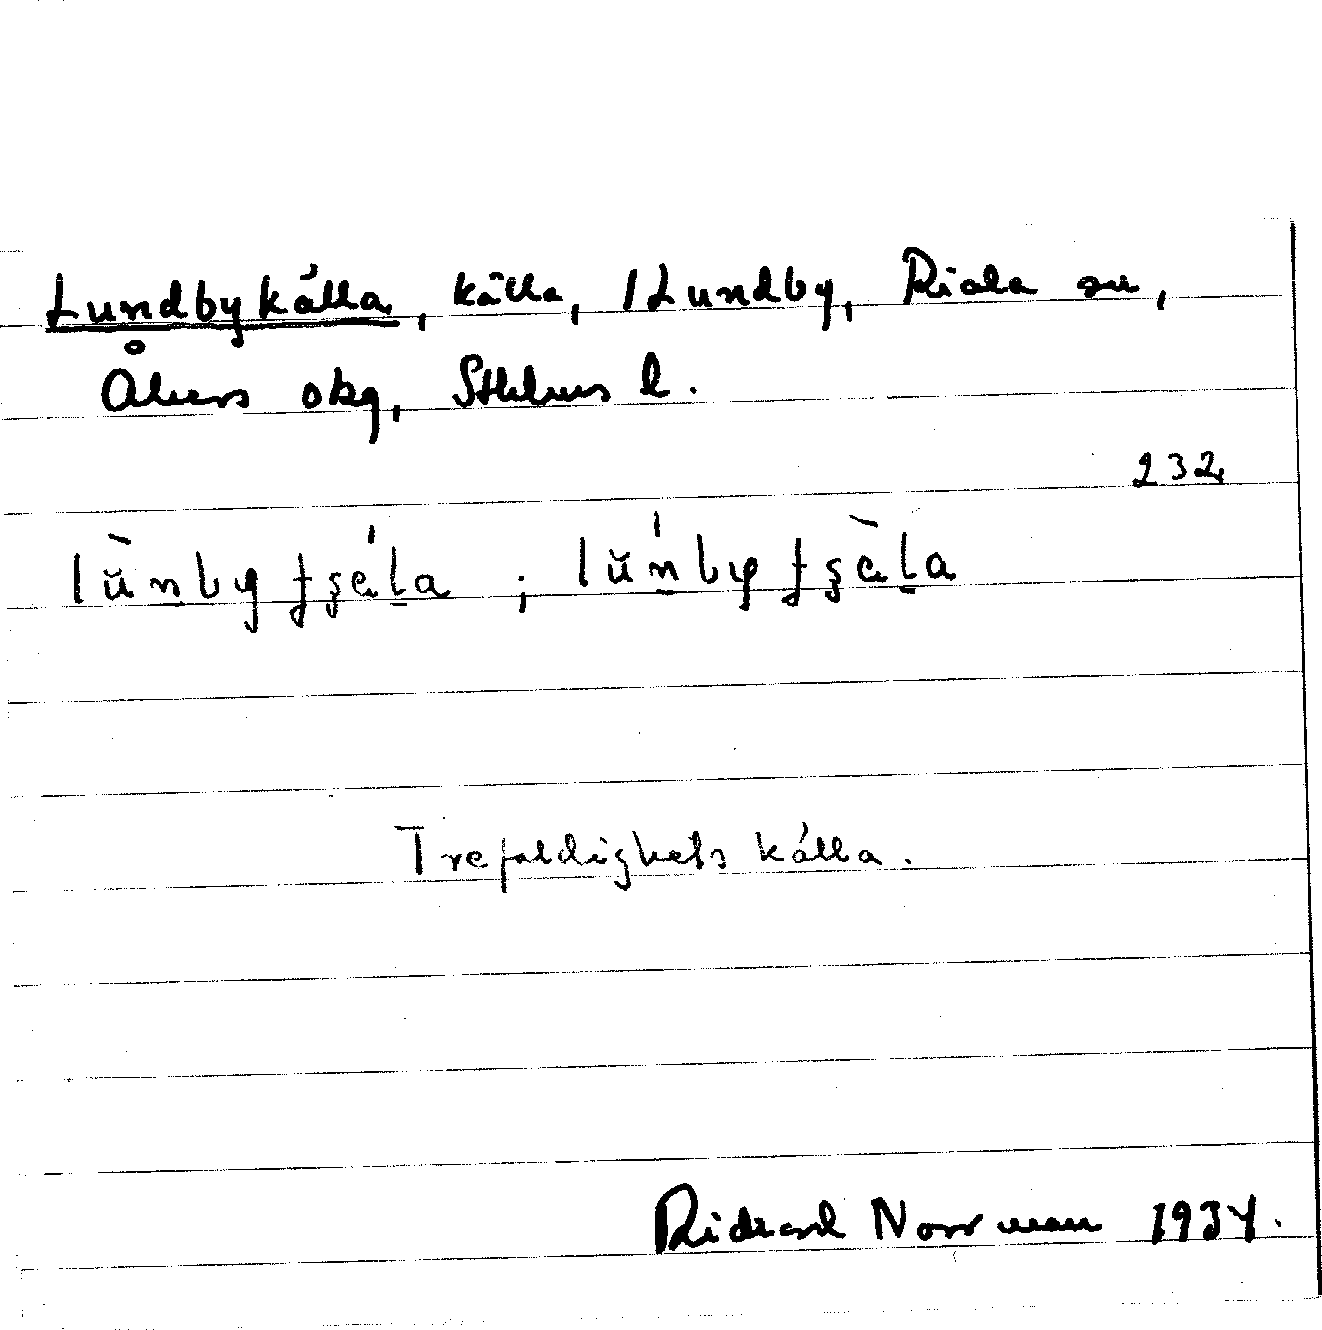 Lundbykälla, källa, /Lundby, Riala sn,
Åkers skg, Sthlms l.
232
lùnby ʈʂéla ; lúnby ʈʂèla
Trefaldighets källa.
Richard Norrman 1934.